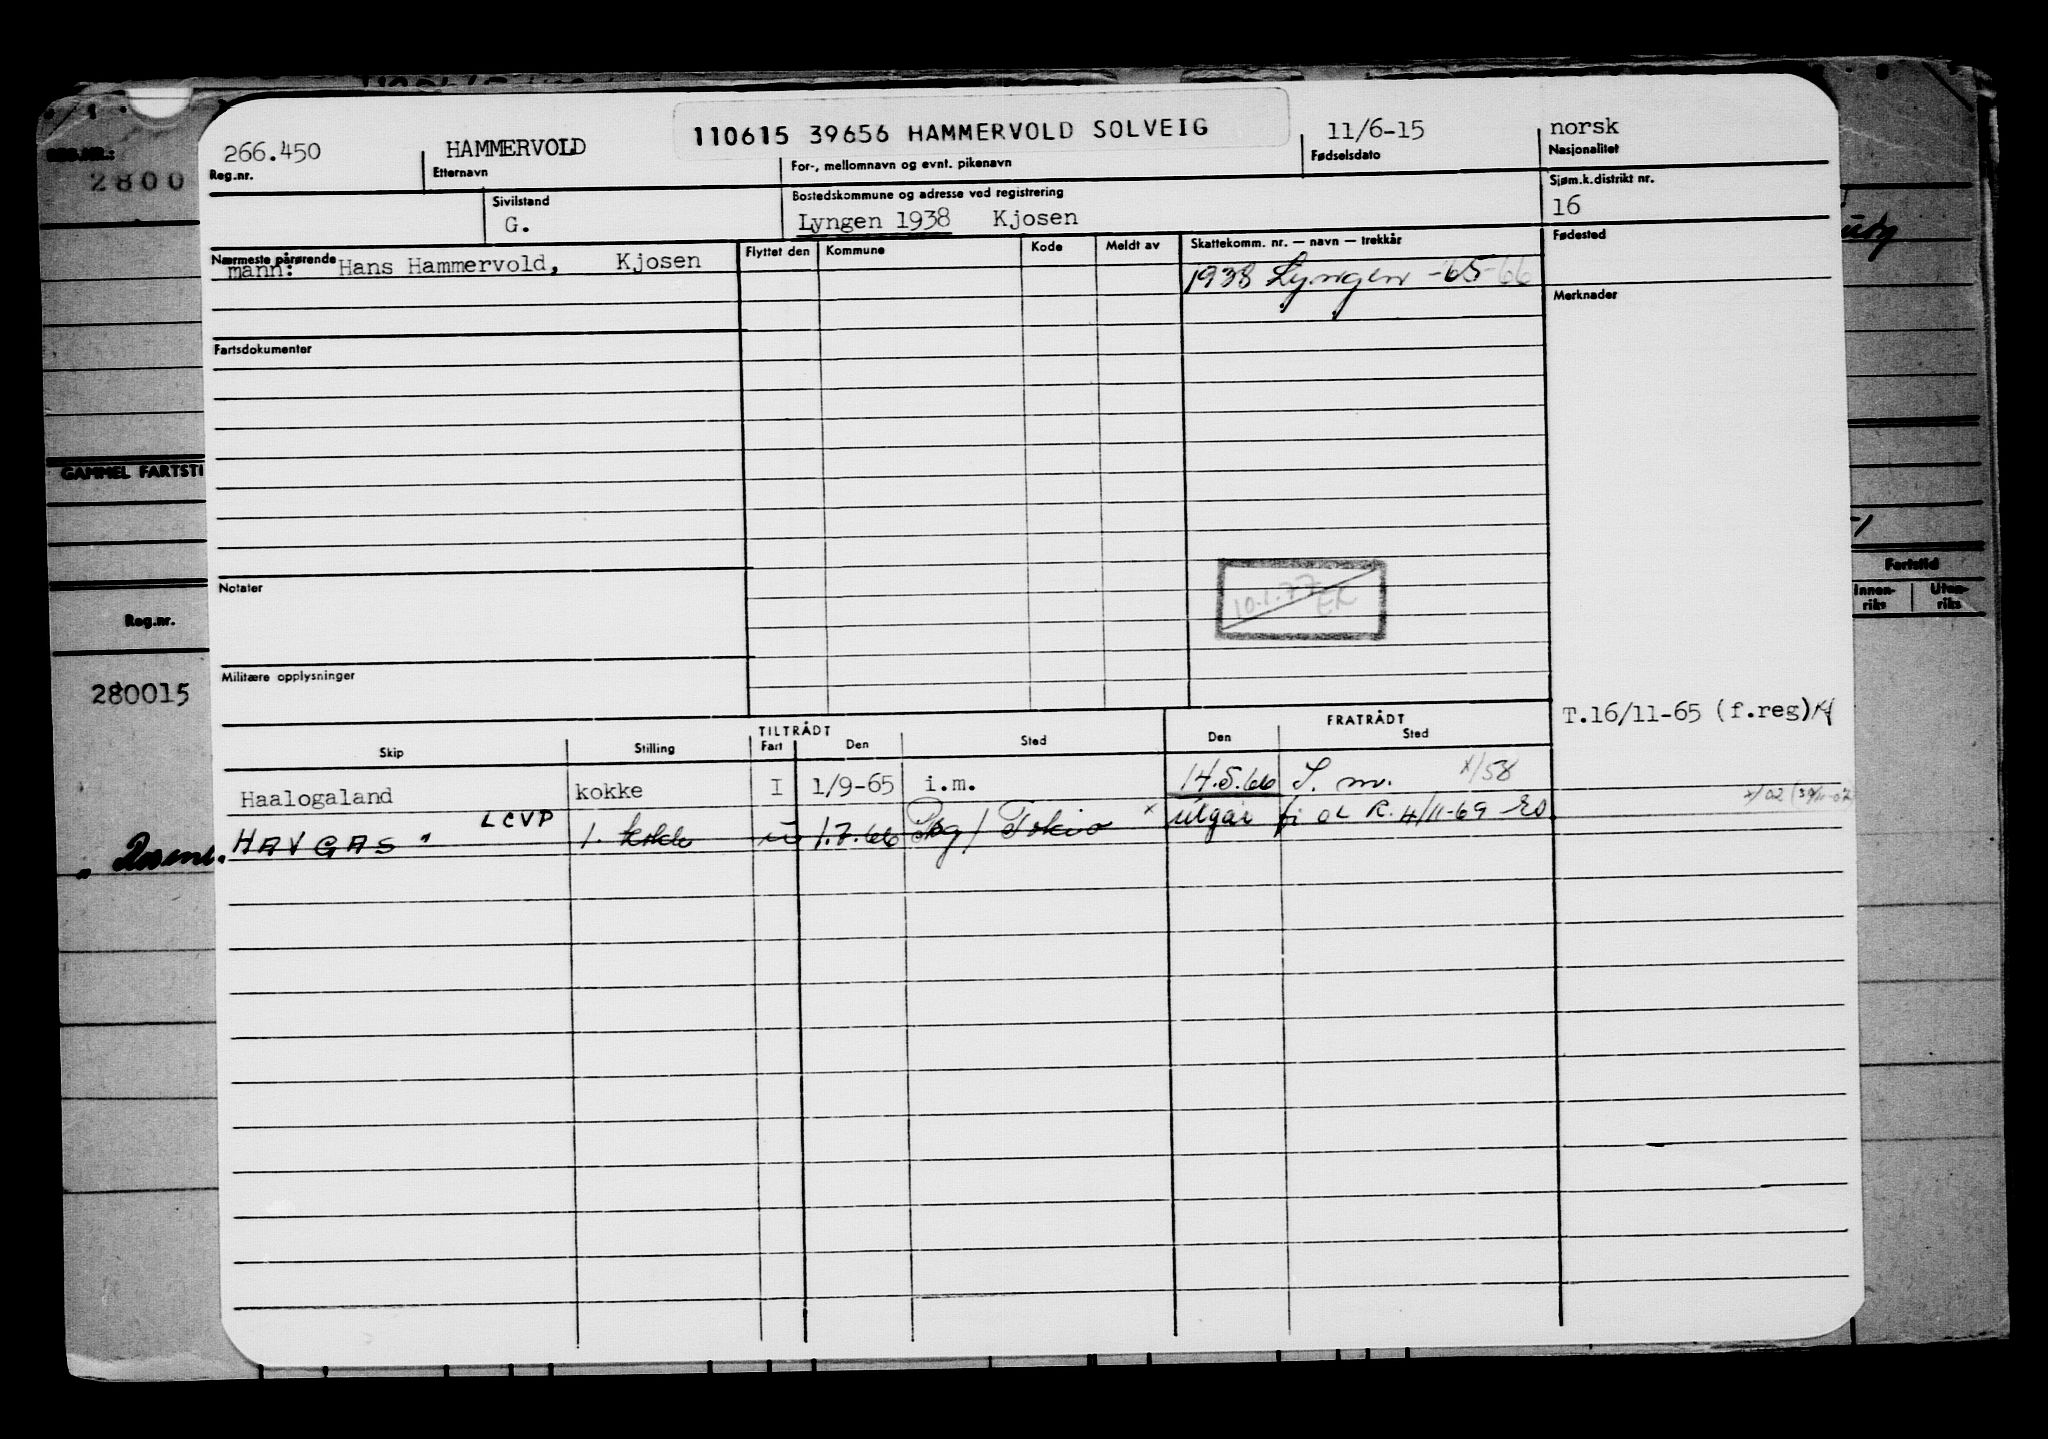 110615 39656 HAMMERVOLD SOLVEIG
266.450 HAMMERVOLD 11/6-15 norsk
Reg.nr. Etternavn For-, mellomnavn og evnt. pikenavn Fødselsdato Nasjonalitet
Sivilstand Bostedskommune og adresse ved registrering Sjøm.k.distrikt nr.
G. Lyngen 1938 Kjosen 16
Nærmeste pårørende Flyttet den Kommune Kode Meldt av Skattekomm. nr. — navn — trekkår Fødested
mann: Hans Hammervold, Kjosen 1938 Lyngen -65-66
Merknader
Fartsdokumenter
10.1.77 EK
Notater
Militære opplysninger
T.16/11-65 (f.reg)
TILTRÅDT FRATRÅDT
Skip Stilling Fart Den Sted Den Sted
Haalogaland kokke I 1/9-65 i.m. 14.5.66 x/58
HAVGAS" LCVP 1. 1.7.66 Tokio x utgår R. 4/11-69
REG.NR.:
2800
GAMMEL FARTSTI
Reg.nr.
280015
Fartstid
Innen-riks Uten-riks